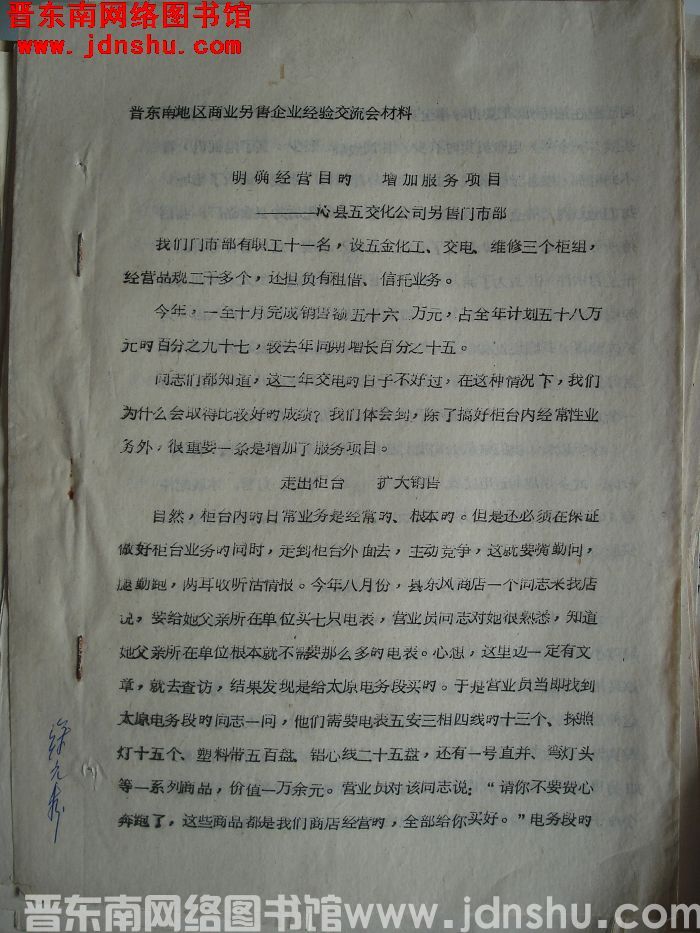 晋东南网络图书馆
www.jdnshu.com
晋东南地区商业另售企业经验交流会材料
明确经营目的 增加服务项目
———沁县五交化公司另售门市部
我们门市部有职工十一名，设五金化工、交电、维修三个柜组，
经营品规二千多个，还担负有租借、信托业务。
今年，一至十月完成销售额五十六 万元，占全年计划五十八万
元的百分之九十七，较去年同期增长百分之十五。
同志们都知道，这二年交电的日子不好过，在这种情况下，我们
为什么会取得比较好的成绩？我们体会到，除了搞好柜台内经常性业
务外，很重要一条是增加了服务项目。
走出柜台 扩大销售
自然，柜台内的日常业务是经常的、根本的。但是还必须在保证
做好柜台业务的同时，走到柜台外面去，主动竞争，这就要嘴勤问，
腿勤跑，两耳收听活情报。今年八月份，县东风商店一个同志来我店
说，要给她父亲所在单位买七只电表，营业员同志对她很熟悉，知道
她父亲所在单位根本就不需要那么多的电表。心想，这里边一定有文
章，就去查访，结果发现是给太原电务段买的。于是营业员当即找到
太原电务段的同志一问，他们需要电表五安三相四线的十三个、探照
灯十五个、塑料带五百盘、铝心线二十五盘，还有一号直并、弯灯头
等一系列商品，价值一万余元。营业员对该同志说：“请你不要费心
奔跑了，这些商品都是我们商店经营的，全部给你买好。”电务段的
晋东南网络图书馆 www.jdnshu.com